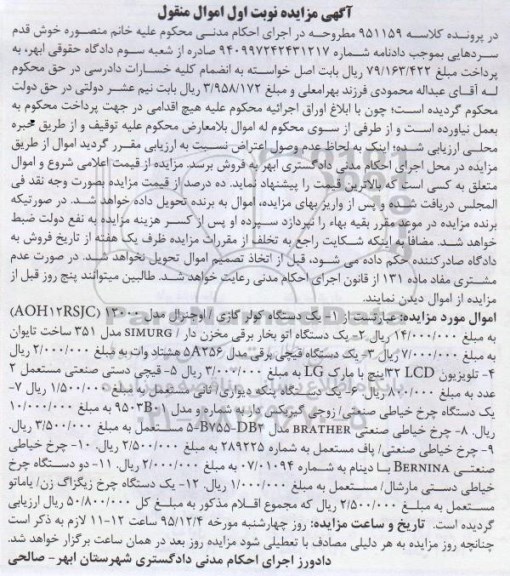 آگهی مزایده نوبت اول اموال منقول
در پرونده کلاسه ۹۵۱۱۵۹ مطروحه در اجرای احکام مدنی محکوم علیه خانم منصوره خوش قدم
سردهایی بموجب دادنامه شماره ۹۴۰۹۹۷۲۴۲۴۳۱۲۱۷ صادره از شعبه سوم دادگاه حقوقی ابهر، به
پرداخت مبلغ ۷۹/۱۶۳/۴۲۲ ریال بابت اصل خواسته به انضمام کلیه خسارات دادرسی در حق محکوم
له آقای عبداله محمودی فرزند بهرامعلی و مبلغ ۳/۹۵۸/۱۷۲ ریال بابت نیم عشر دولتی در حق دولت
محکوم گردیده است؛ چون با ابلاغ اوراق اجرائیه محکوم علیه هیچ اقدامی در جهت پرداخت محکوم به
بعمل نیاورده است و از طرفی از سوی محکوم له اموال بلامعارض محکوم علیه توقیف و از طریق خبره
محلی ارزیابی شده؛ اینک به لحاظ عدم وصول اعتراض نسبت به ارزیابی مقرر گردید اموال از طریق
مزایده در محل اجرای احکام مدنی دادگستری ابهر به فروش برسد. مزایده از قیمت اعلامی شروع و اموال
متعلق به کسی است که بالاترین قیمت را پیشنهاد نماید. ده درصد از قیمت مزایده بصورت وجه نقد فی
المجلس دریافت شده و پس از واریز بهای مزایده، اموال به برنده تحویل داده خواهد شد. در صورتیکه
برنده مزایده در موعد مقرر بقیه بهاء را نپردازد سپرده او پس از کسر هزینه مزایده به نفع دولت ضبط
خواهد شد. مضافا به اینکه شکایت راجع به تخلف از مقررات مزایده ظرف یک هفته از تاریخ فروش به
دادگاه صادرکننده حکم داده می شود، قبل از اتخاذ تصمیم اموال تحویل نخواهد شد. در صورت عدم
مشتری مفاد ماده ۱۳۱ از قانون اجرای احکام مدنی رعایت خواهد شد. طالبین میتوانند پنج روز قبل از
مزایده از اموال دیدن نمایند.
اموال مورد مزایده: عبارتست از ۱- یک دستگاه کولر گازی / اوجنرال مدل ۱۳۰۰۰ (AOH۱۲RSJC)
به مبلغ ۱۴/۰۰۰/۰۰۰ ریال ۲- یک دستگاه اتو بخار برقی مخزن دار / SIMURG مدل ۳۵۱ ساخت تایوان
به مبلغ ۷/۰۰۰/۰۰۰ ریال ۳- یک دستگاه قیچی برقی مدل ۵۸۲۵۶ هشتاد وات به مبلغ ۲/۰۰۰/۰۰۰ ریال
۴- تلویزیون LCD ۳۲اینچ با مارک LG به مبلغ ۳/۰۰۰/۰۰۰ ریال ۵- قیچی دستی صنعتی مستعمل ۲
عدد به مبلغ ۸۰۰/۰۰۰ ریال ۶- یک دستگاه پنکه دیواری/ نانی مستعمل به مبلغ ۱/۵۰۰/۰۰۰ ریال ۷-
یک دستگاه چرخ خیاطی صنعتی/ زوجی گیربکس دار به شماره و مدل ۹۵۰۳B۰۱ به مبلغ ۱۰/۰۰۰/۰۰۰
ریال. ۸- چرخ خیاطی صنعتی BRATHER مدل ۵-B۷۵۵-DB۲ مستعمل به مبلغ ۳/۵۰۰/۰۰۰ ریال.
۹- چرخ خیاطی صنعتی/ پاف مستعمل به شماره ۲۸۹۲۲۵ به مبلغ ۲/۵۰۰/۰۰۰ ریال. ۱۰- چرخ خیاطی
صنعتی BERNINA با دینام به شماره ۰۷/۰۱۰۹۴ به مبلغ ۲/۰۰۰/۰۰۰ ریال. ۱۱- دو دستگاه چرخ
خیاطی دستی مارشال/ مستعمل به مبلغ ۱/۰۰۰/۰۰۰ ریال. ۱۲- یک دستگاه چرخ زیگزاگ زن/ یاماتو
مستعمل به مبلغ ۲/۵۰۰/۰۰۰ ریال که مجموع اقلام مذکور به مبلغ کل ۵۰/۸۰۰/۰۰۰ ریال ارزیابی
گردیده است. تاریخ و ساعت مزایده: روز چهارشنبه مورخه ۹۵/۱۲/۴ ساعت ۱۲-۱۱ لازم به ذکر است
چنانچه روز مزایده به هر دلیلی مصادف با تعطیلی شود مزایده روز بعد در همان ساعت برگزار خواهد شد.
دادورز اجرای احکام مدنی دادگستری شهرستان ابهر- صالحی